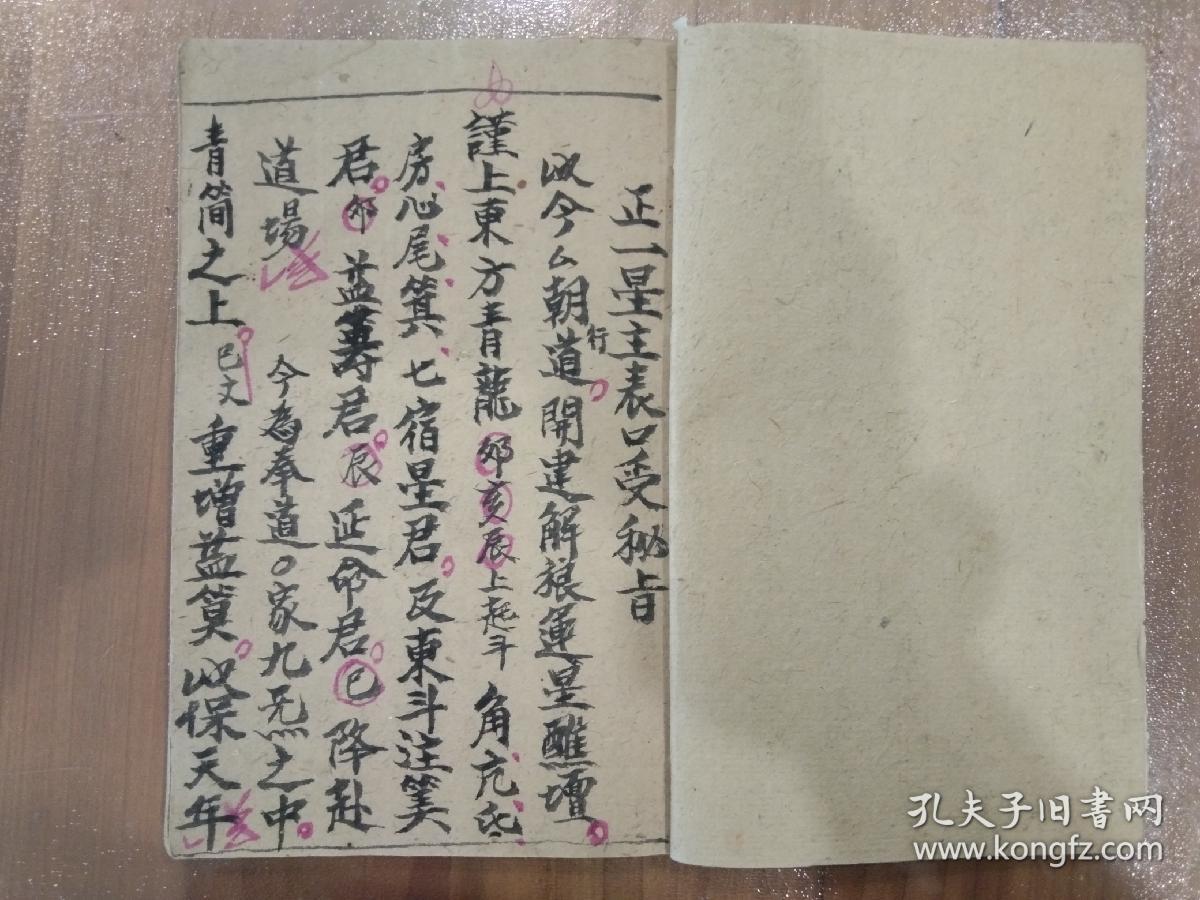 正一星主表口受秘旨
以今厶朝道行開建解禳運星醮壇
謹上東方青龍卯亥辰上起斗角亢氐
房心尾箕七宿星君及東斗注筭
君卯益筭君辰延命君巳降赴
道場 今為奉道〇家九炁之中
青简之上巳文重增益筭以保天年
孔夫子旧书网
www.kongfz.com